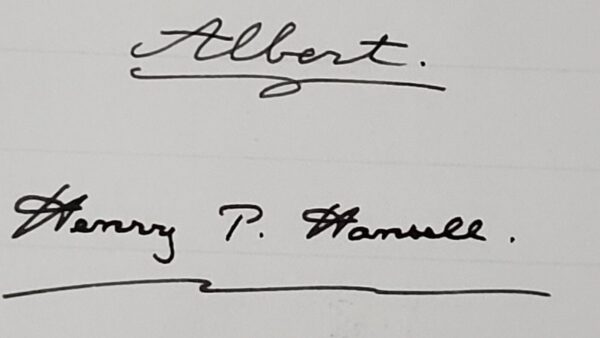 Albert.
Henry P. Hansell.